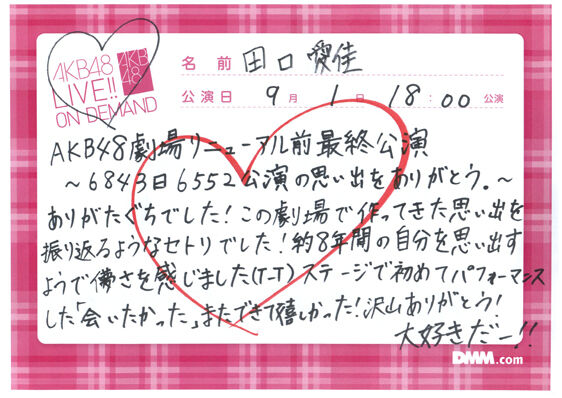 AKB48
LIVE!!
ON DEMAND
AKB
48
名前 田口愛佳
公演日 9月1日 18:00 公演
AKB48劇場リニューアル前最終公演
～6843日6552公演の思い出をありがとう。～
ありがたぐちでした！この劇場で作ってきた思い出を
振り返るようなセトリでした！約8年間の自分を思い出す
ようで儚さを感じました(T-T) ステージで初めてパフォーマンス
した「会いたかった」またできて嬉しかった！沢山ありがとう！
大好きだー!!
DMM.com